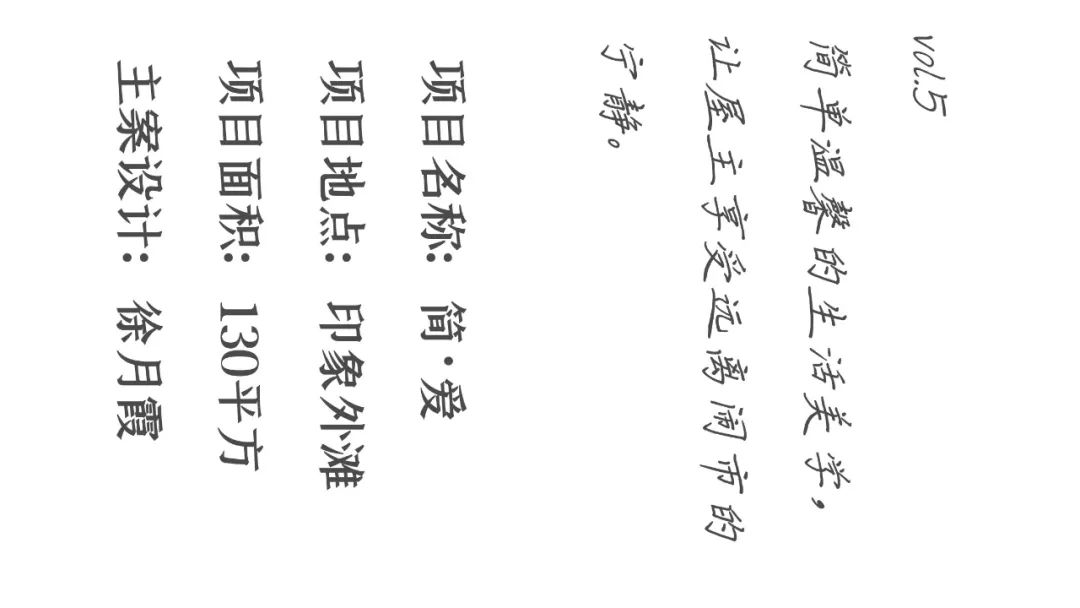 vol.5
简单温馨的生活美学，
让屋主享受远离闹市的
宁静。
项目名称：简·爱
项目地点：印象外滩
项目面积：130平方
主案设计：徐月霞